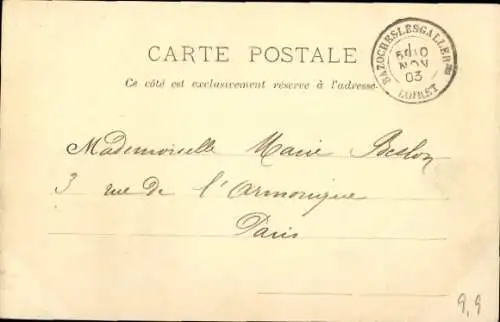 CARTE POSTALE
Ce côté est exclusivement réservé à l'adresse.
BAZOCHES-LES-GALLER^ES
5E 10
NOV
03
LOIRET
Mademoiselle Marie Beslon
3 rue de l'Armorique
Paris
9,9